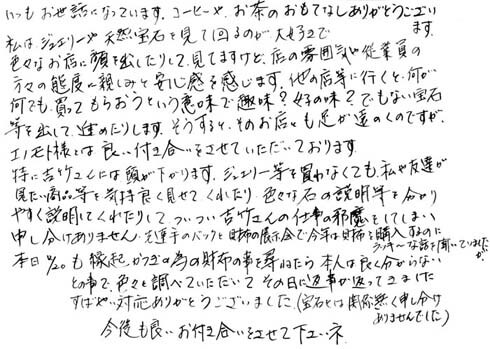 いつもお世話になっています。コーヒーや、お茶のおもてなしありがとうござい
ます。
私はジュエリーや天然宝石を見て回るのが大好きで
色々なお店に顔を出したりして、見てますけど、店の雰囲気や従業員の
方々の態度に親しみと安心感を感じます。他の店等に行くと、何が
何でも、買ってもらおうという意味で趣味?好の味?でもない宝石
等を出して、進めたりします。そうすると、そのお店にも足が遠のくのですが、
エノモト様とは良い付き合いをさせていただいております。
特に吉竹さんには頭が下がります。ジュエリー等を買わなくても、私や友達が
見たい商品等を気持良く見せてくれたり、色々な石の説明等を分かり
やすく説明してくれたりして、ついつい吉竹さんの仕事の邪魔をしてしまい
申し分けありません。先達手のバックと財布の展示会で今年は財布を購入するのに
ラッキーな話を聞いていましたが、
本日11/20も縁起かつぎの為の財布の事を尋ねたら本人は良く分からない
との事で、色々と調べていただいてその日に返事が返ってきました
すばやい対応ありがとうございました。(宝石とは関係無く申し分け
ありませんでした)
今後も良いお付き合いをさせて下さいネ